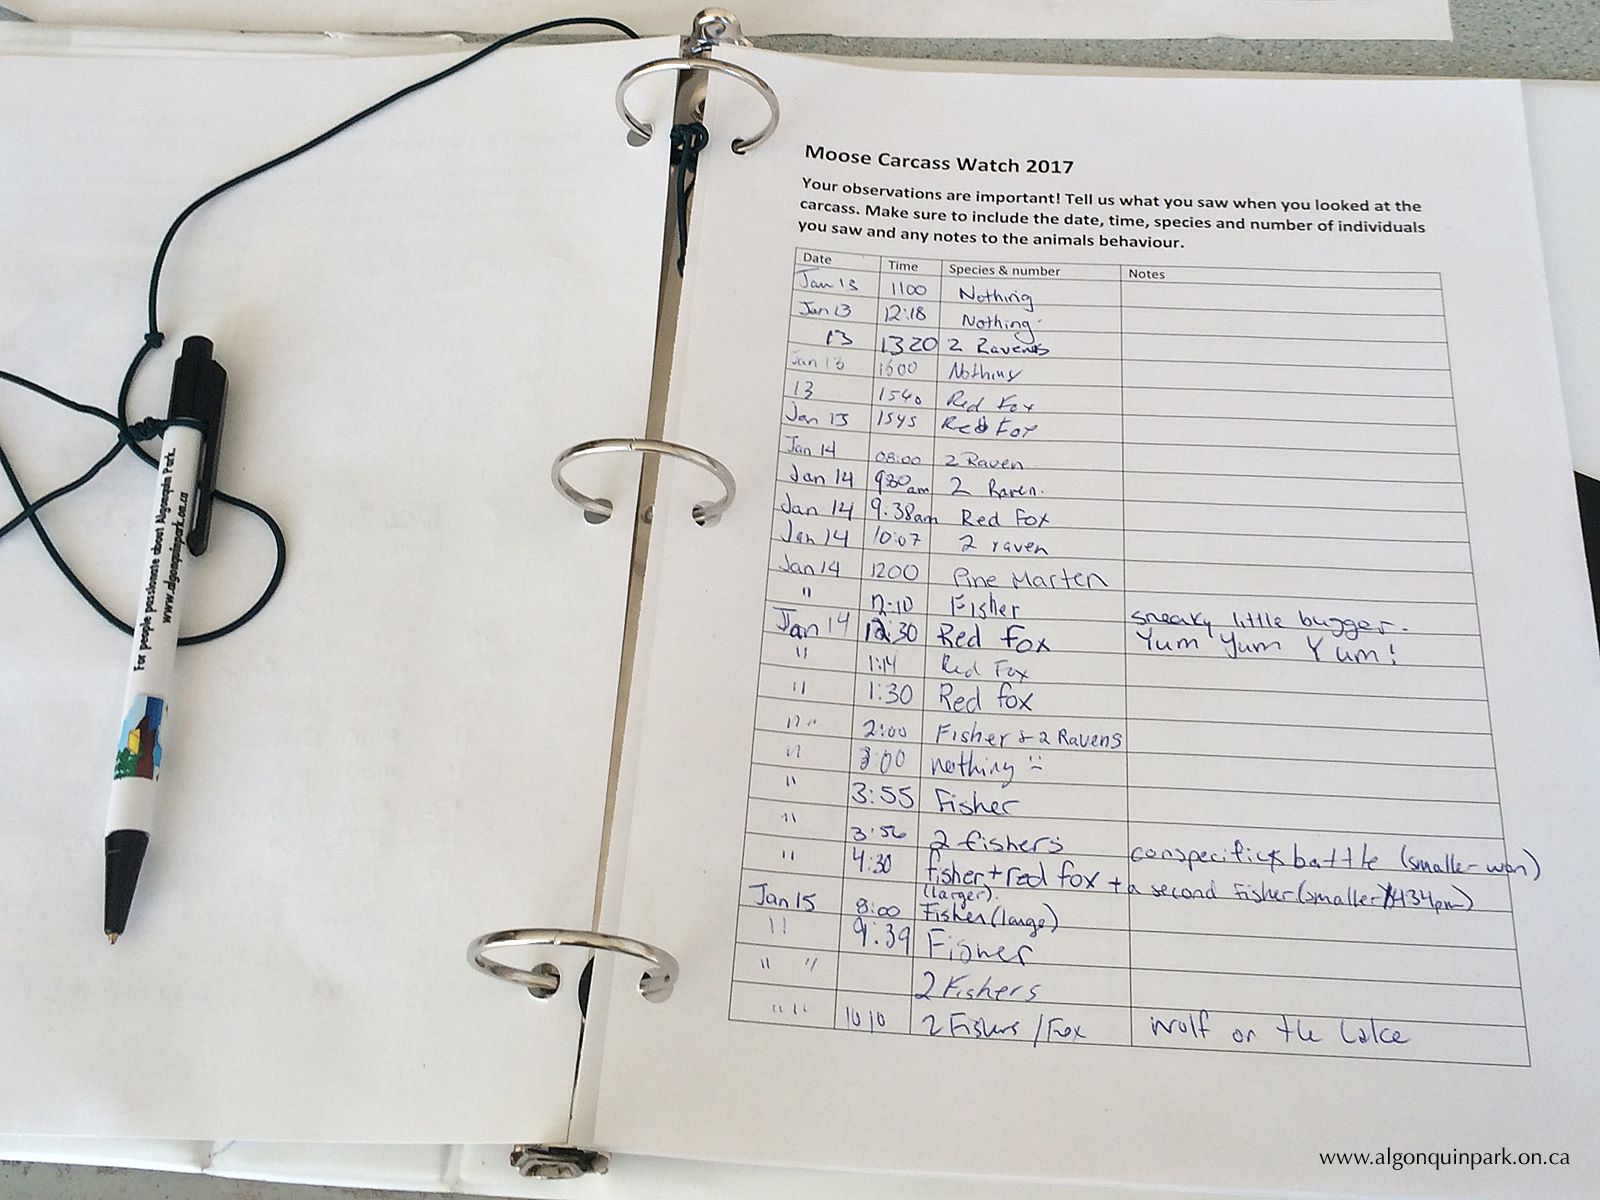 Moose Carcass Watch 2017
Your observations are important! Tell us what you saw when you looked at the
carcass. Make sure to include the date, time, species and number of individuals
you saw and any notes to the animals behaviour.
Date Time Species & number Notes
Jan 13 1100 Nothing
Jan 13 12:18 Nothing
13 1320 2 Ravens
Jan 13 Nothing
13 1540 Red Fox
Jan 13 1545 Red Fox
Jan 14 08:00 2 Raven
Jan 14 930am 2 Raven.
Jan 14 9:38am Red Fox
Jan 14 10:07 2 raven
Jan 14 1200 Pine Marten
" 12:10 Fisher sneaky little bugger.
Jan 14 12:30 Red Fox Yum Yum Yum!
" 1:14 Red Fox
" 1:30 Red fox
" " 2:00 Fisher & 2 Ravens
" 3:00 nothing
" 3:55 Fisher
" 3:56 2 fishers conspecifics battle (smaller won)
" 4:30 fisher + red fox + a second fisher (smaller) (434pm)
(larger).
Jan 15 8:00 Fisher (large)
" 9:39 Fisher
" " 2 Fishers
" " 1010 2 Fishers / Fox Wolf on the lake
For people passionate about Algonquin Park.
www.algonquinpark.on.ca
www.algonquinpark.on.ca